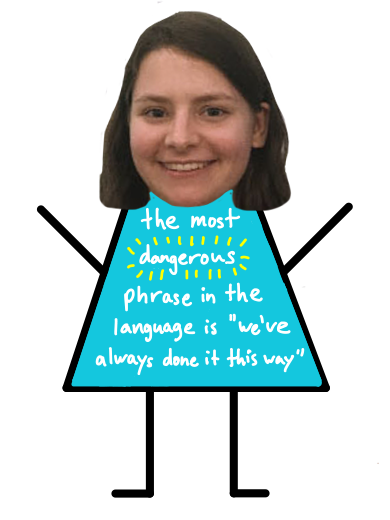 the most
dangerous
phrase in the
language is "we've
always done it this way"